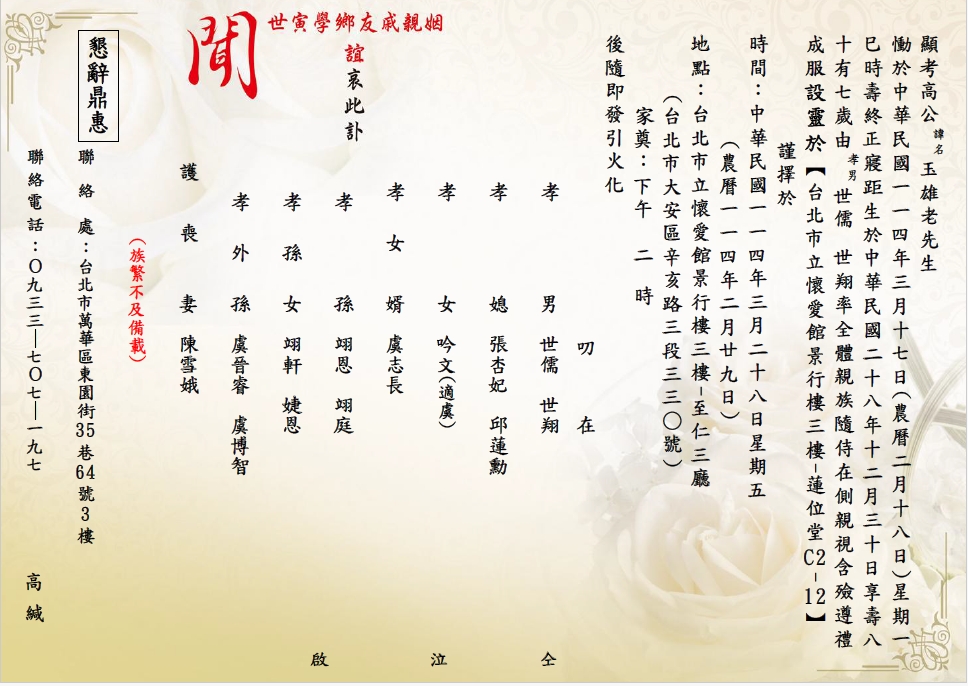 顯考高公諱名玉雄老先生
慟於中華民國一一四年三月十七日(農曆二月十八日)星期一
巳時壽終正寢距生於中華民國二十八年十二月三十日享壽八
十有七歲由孝男世儒 世翔率全體親族隨侍在側親視含殮遵禮
成服設靈於【台北市立懷愛館景行樓三樓-蓮位堂C2-12】
謹擇於
時間：中華民國一一四年三月二十八日星期五
(農曆一一四年二月廿九日)
地點：台北市立懷愛館景行樓三樓-至仁三廳
(台北市大安區辛亥路三段三三〇號)
家奠：下午 二 時
後隨即發引火化
叨 在
孝 男 世儒 世翔
孝 媳 張杏妃 邱蓮勳
孝 女 吟文(適虞)
孝 女 婿 虞志長
孝 孫 翊恩 翊庭
孝 孫 女 翊軒 婕恩
孝 外 孫 虞晉睿 虞博智
護 喪 妻 陳雪娥
仝 泣 啟
姻親戚友鄉學寅世
誼哀此訃
聞
(族繁不及備載)
懇辭鼎惠
聯 絡 處：台北市萬華區東園街35巷64號3樓
聯絡電話：〇九三三—七〇七—一九七
高 緘